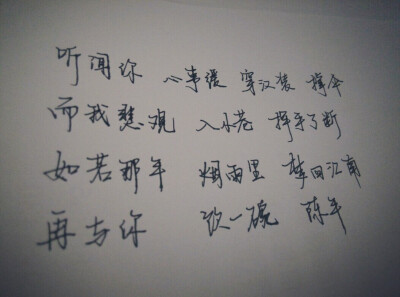 听闻你 心事缓 穿汉装 撑伞
而我悲观 入小巷 挥手了断
如若那年 烟雨里 梦回江南
再与你 饮一碗 陈年